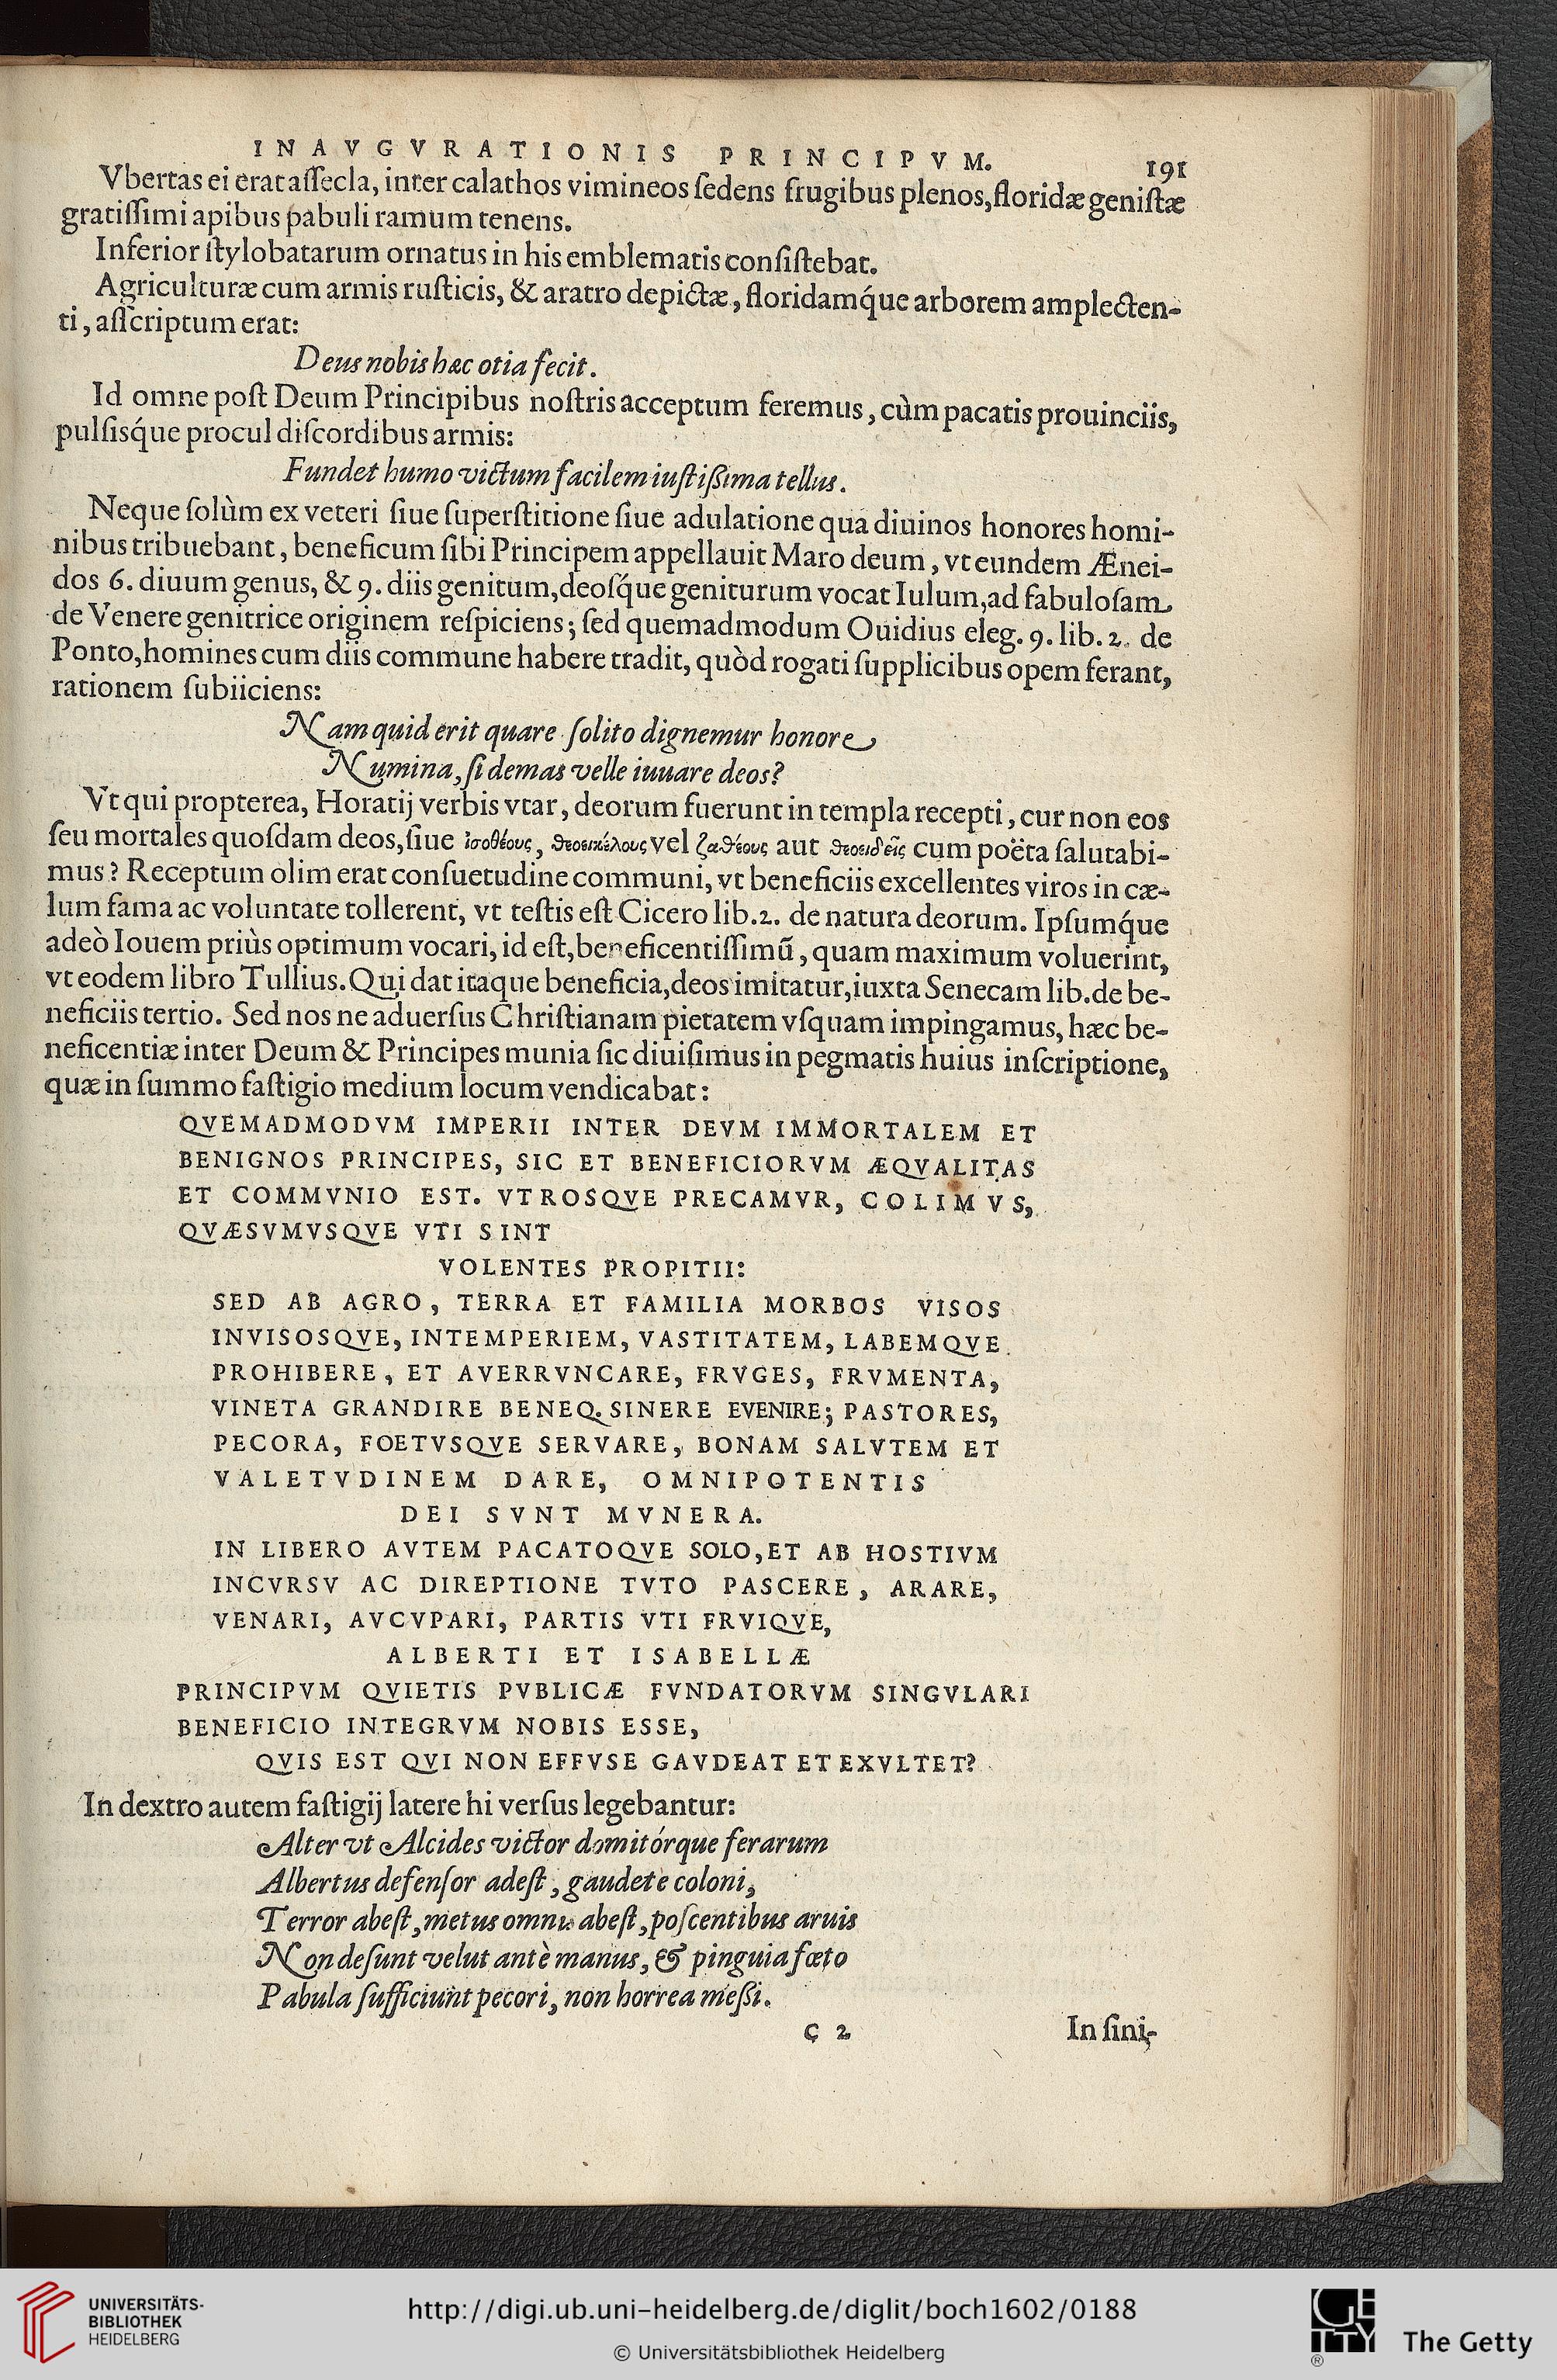 INAVGVRATIONIS PRINCIPVM. 191
Vbertas ei erat aſſecla, inter calathos vimineos ſedens frugibus plenos, floridæ geniſtæ
gratiſſimi apibus pabuli ramum tenens.
Inferior ſtylobatarum ornatus in his emblematis conſiſtebat.
Agriculturæ cum armis ruſticis, & aratro depictæ, floridamq́ue arborem amplecten-
ti, aſſcriptum erat:
Deus nobis hæc otia fecit.
Id omne poſt Deum Principibus noſtris acceptum feremus, cùm pacatis prouinciis,
pulſisq́ue procul diſcordibus armis:
Fundet humo victum facilem iuſtißima tellus.
Neque ſolùm ex veteri ſiue ſuperſtitione ſiue adulatione qua diuinos honores homi-
nibus tribuebant, beneficum ſibi Principem appellauit Maro deum, vt eundem Ænei-
dos 6. diuum genus, & 9. diis genitum, deoſq́ue geniturum vocat Iulum, ad fabuloſam
de Venere genitrice originem reſpiciens; ſed quemadmodum Ouidius eleg. 9. lib. 2. de
Ponto, homines cum diis commune habere tradit, quòd rogati ſupplicibus opem ferant,
rationem ſubiiciens:
Nam quid erit quare ſolito dignemur honore
Numina, ſi demas velle iuuare deos?
Vt qui propterea, Horatij verbis vtar, deorum fuerunt in templa recepti, cur non eos
ſeu mortales quoſdam deos, ſiue ἰσοθέους, θεοεικέλους vel ζαθέους aut θεοειδεῖς cum poëta ſalutabi-
mus? Receptum olim erat conſuetudine communi, vt beneficiis excellentes viros in cæ-
lum fama ac voluntate tollerent, vt teſtis eſt Cicero lib. 2. de natura deorum. Ipſumq́ue
adeò Iouem priùs optimum vocari, id eſt, beneficentiſſimũ, quam maximum voluerint,
vt eodem libro Tullius. Qui dat itaque beneficia, deos imitatur, iuxta Senecam lib. de be-
neficiis tertio. Sed nos ne aduerſus Chriſtianam pietatem vſquam impingamus, hæc be-
neficentiæ inter Deum & Principes munia ſic diuiſimus in pegmatis huius inſcriptione,
quæ in ſummo faſtigio medium locum vendicabat:
QVEMADMODVM IMPERII INTER DEVM IMMORTALEM ET
BENIGNOS PRINCIPES, SIC ET BENEFICIORVM ÆQVALITAS
ET COMMVNIO EST. VTROSQVE PRECAMVR, COLIMVS,
QVÆSVMVSQVE VTI SINT
VOLENTES PROPITII:
SED AB AGRO, TERRA ET FAMILIA MORBOS VISOS
INVISOSQVE, INTEMPERIEM, VASTITATEM, LABEMQVE
PROHIBERE, ET AVERRVNCARE, FRVGES, FRVMENTA,
VINETA GRANDIRE BENEQ. SINERE EVENIRE; PASTORES,
PECORA, FOETVSQVE SERVARE, BONAM SALVTEM ET
VALETVDINEM DARE, OMNIPOTENTIS
DEI SVNT MVNERA.
IN LIBERO AVTEM PACATOQVE SOLO, ET AB HOSTIVM
INCVRSV AC DIREPTIONE TVTO PASCERE, ARARE,
VENARI, AVCVPARI, PARTIS VTI FRVIQVE,
ALBERTI ET ISABELLÆ
PRINCIPVM QVIETIS PVBLICÆ FVNDATORVM SINGVLARI
BENEFICIO INTEGRVM NOBIS ESSE,
QVIS EST QVI NON EFFVSE GAVDEAT ET EXVLTET?
In dextro autem faſtigij latere hi verſus legebantur:
Alter vt Alcides victor domitórque ferarum
Albertus defenſor adeſt, gaudete coloni,
Terror abeſt, metus omnis abeſt, poſcentibus aruis
Non deſunt velut antè manus, & pinguia fœto
Pabula ſufficiunt pecori, non horrea meßi.
C 2 In ſini-
UNIVERSITÄTS-
BIBLIOTHEK
HEIDELBERG
http://digi.ub.uni-heidelberg.de/diglit/boch1602/0188
© Universitätsbibliothek Heidelberg
GETTY
®
The Getty